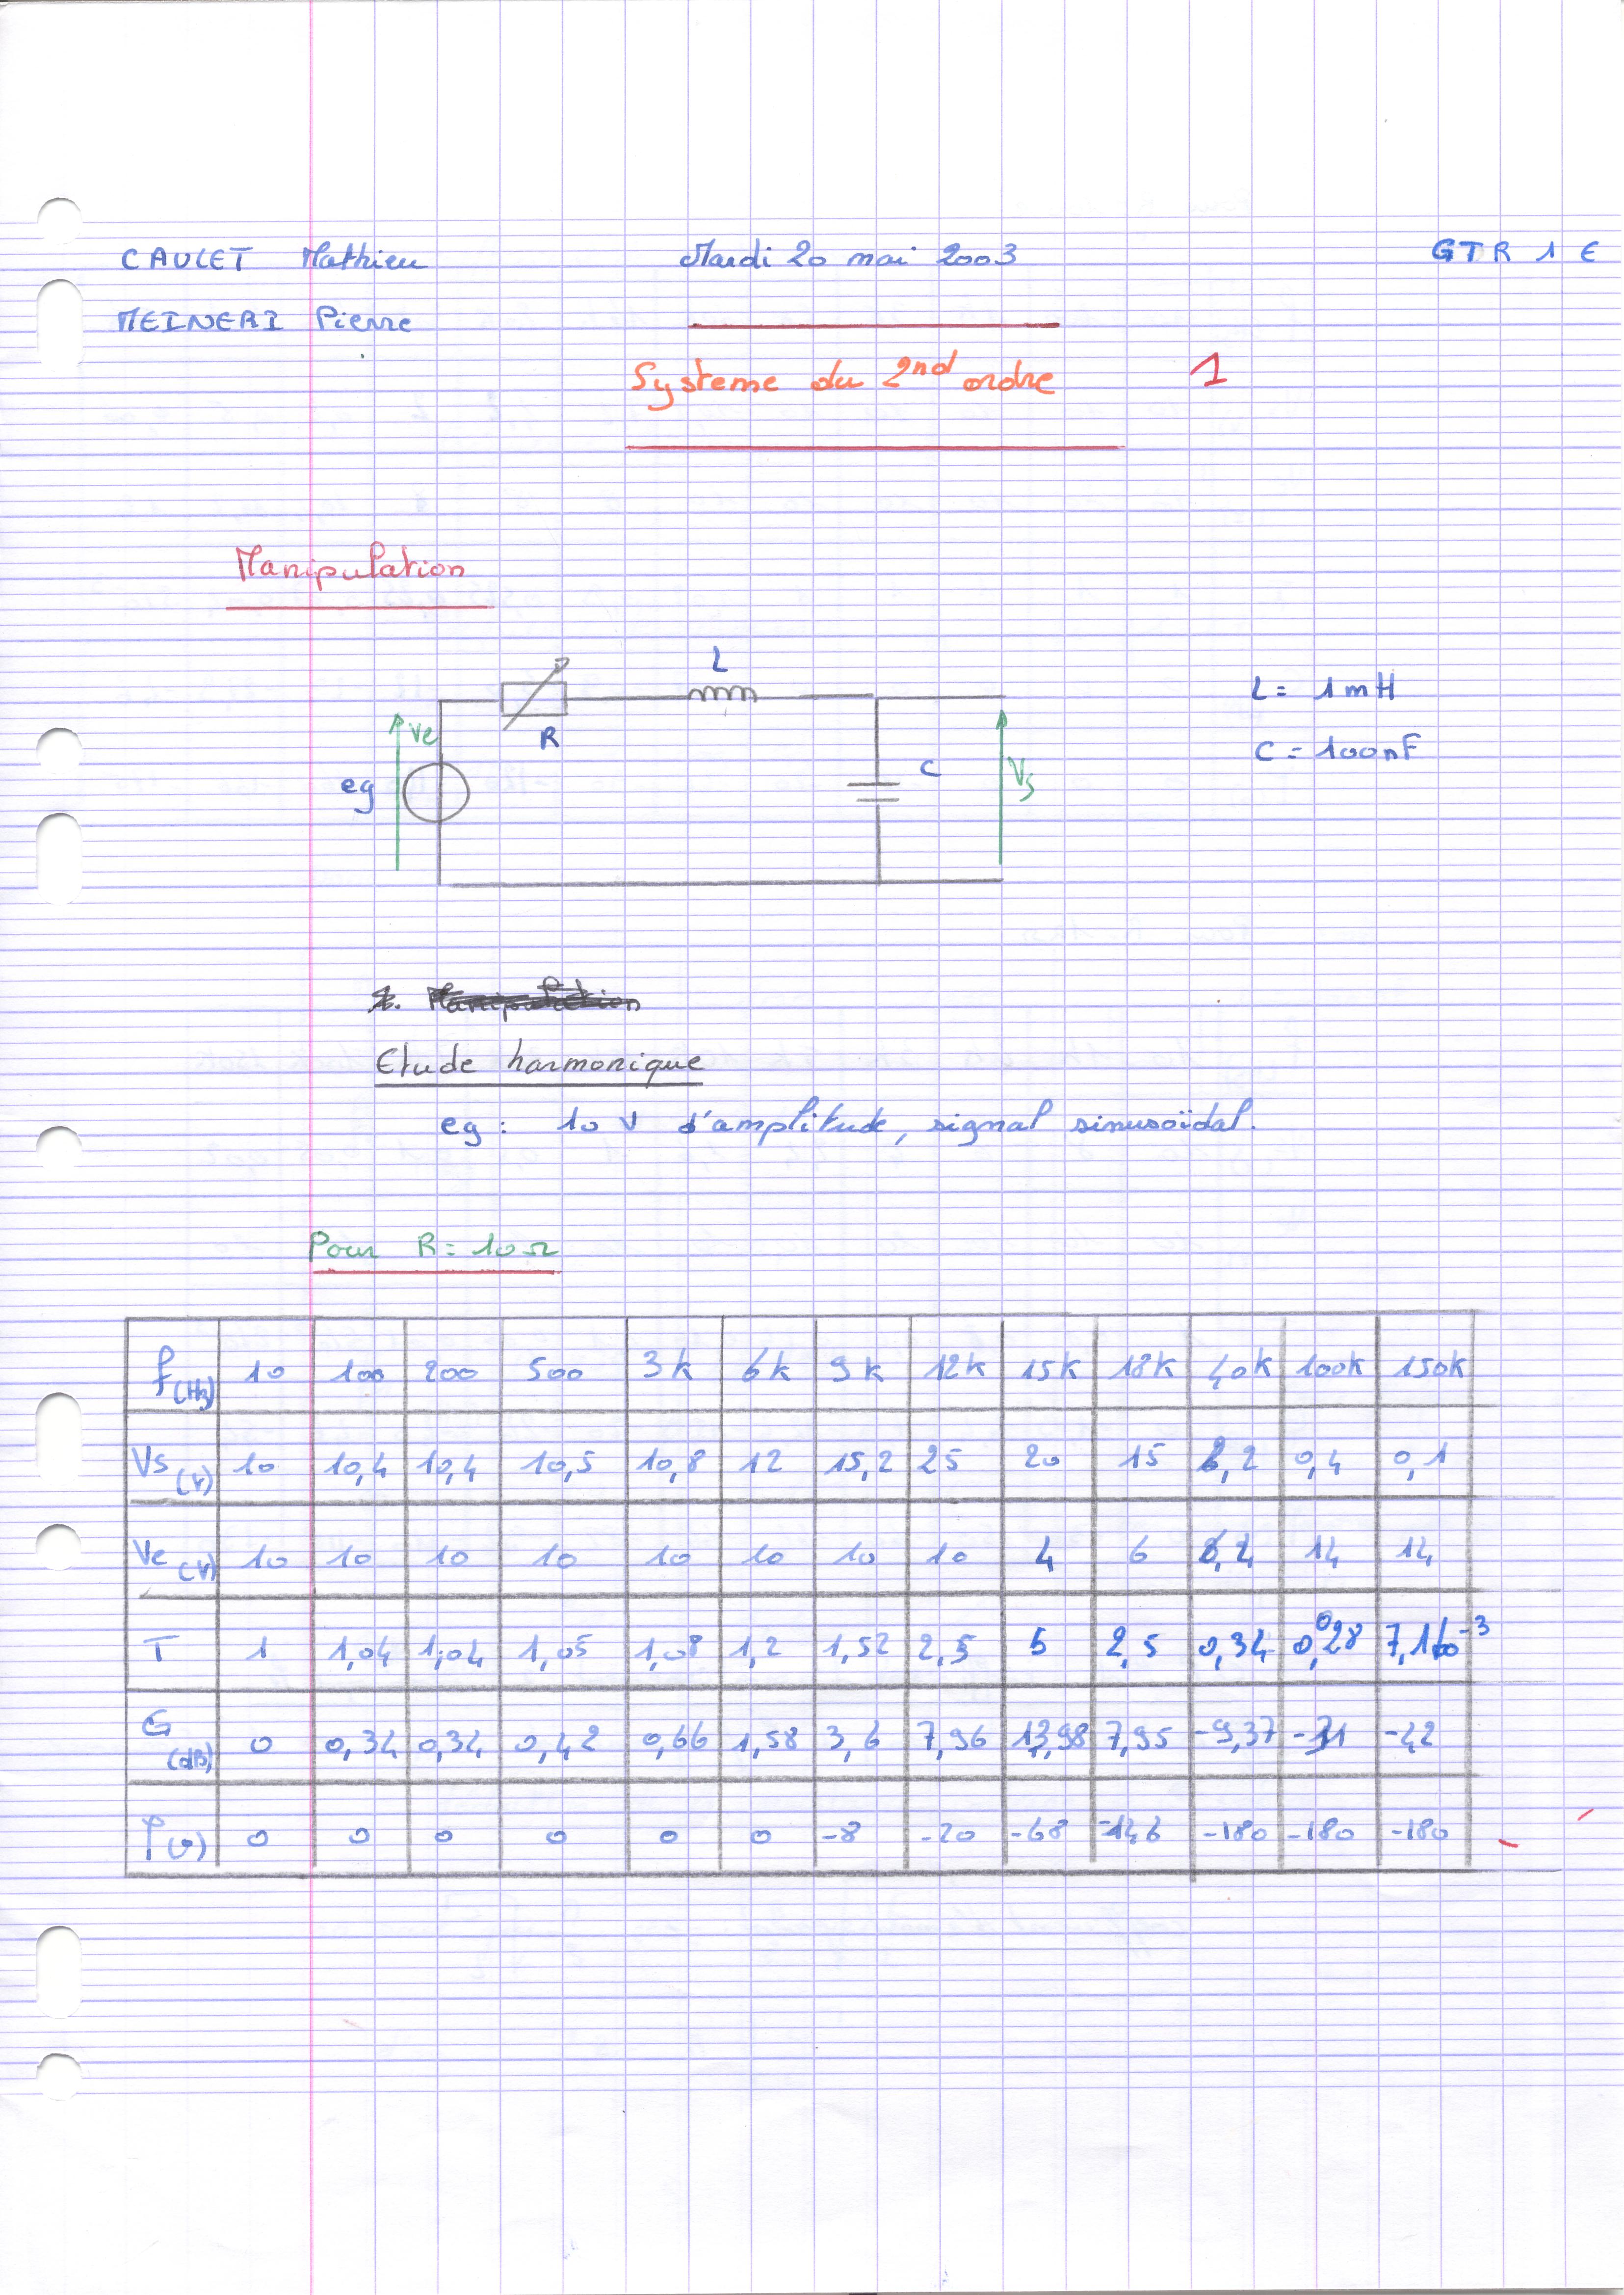 CAULET Mathieu Mardi 20 mai 2003 GTR 1 E
MEINERI Pierre
Systeme du 2nd ordre 1
Manipulation
L
L = 1mH
Ve
R
C = 100nF
eg
C
Vs
Etude harmonique
eg : 10 V d'amplitude, signal sinusoïdal.
Pour R = 10Ω
f(Hz) 10 100 200 500 3k 6k 9k 12k 15k 18k 40k 100k 150k
Vs(V) 10 10,4 10,4 10,5 10,8 12 15,2 25 20 15 2,2 0,4 0,1
Ve(V) 10 10 10 10 10 10 10 10 4 6 14 14
T 1 1,04 1,04 1,05 1,08 1,2 1,52 2,5 5 2,5 0,34 0,028 7,1 10-3
G(dB) 0 0,34 0,34 0,42 0,66 1,58 3,6 7,96 13,98 7,95 -9,37 -31 -42
φ(°) 0 0 0 0 0 0 -8 -20 -68 -146 -180 -180 -180